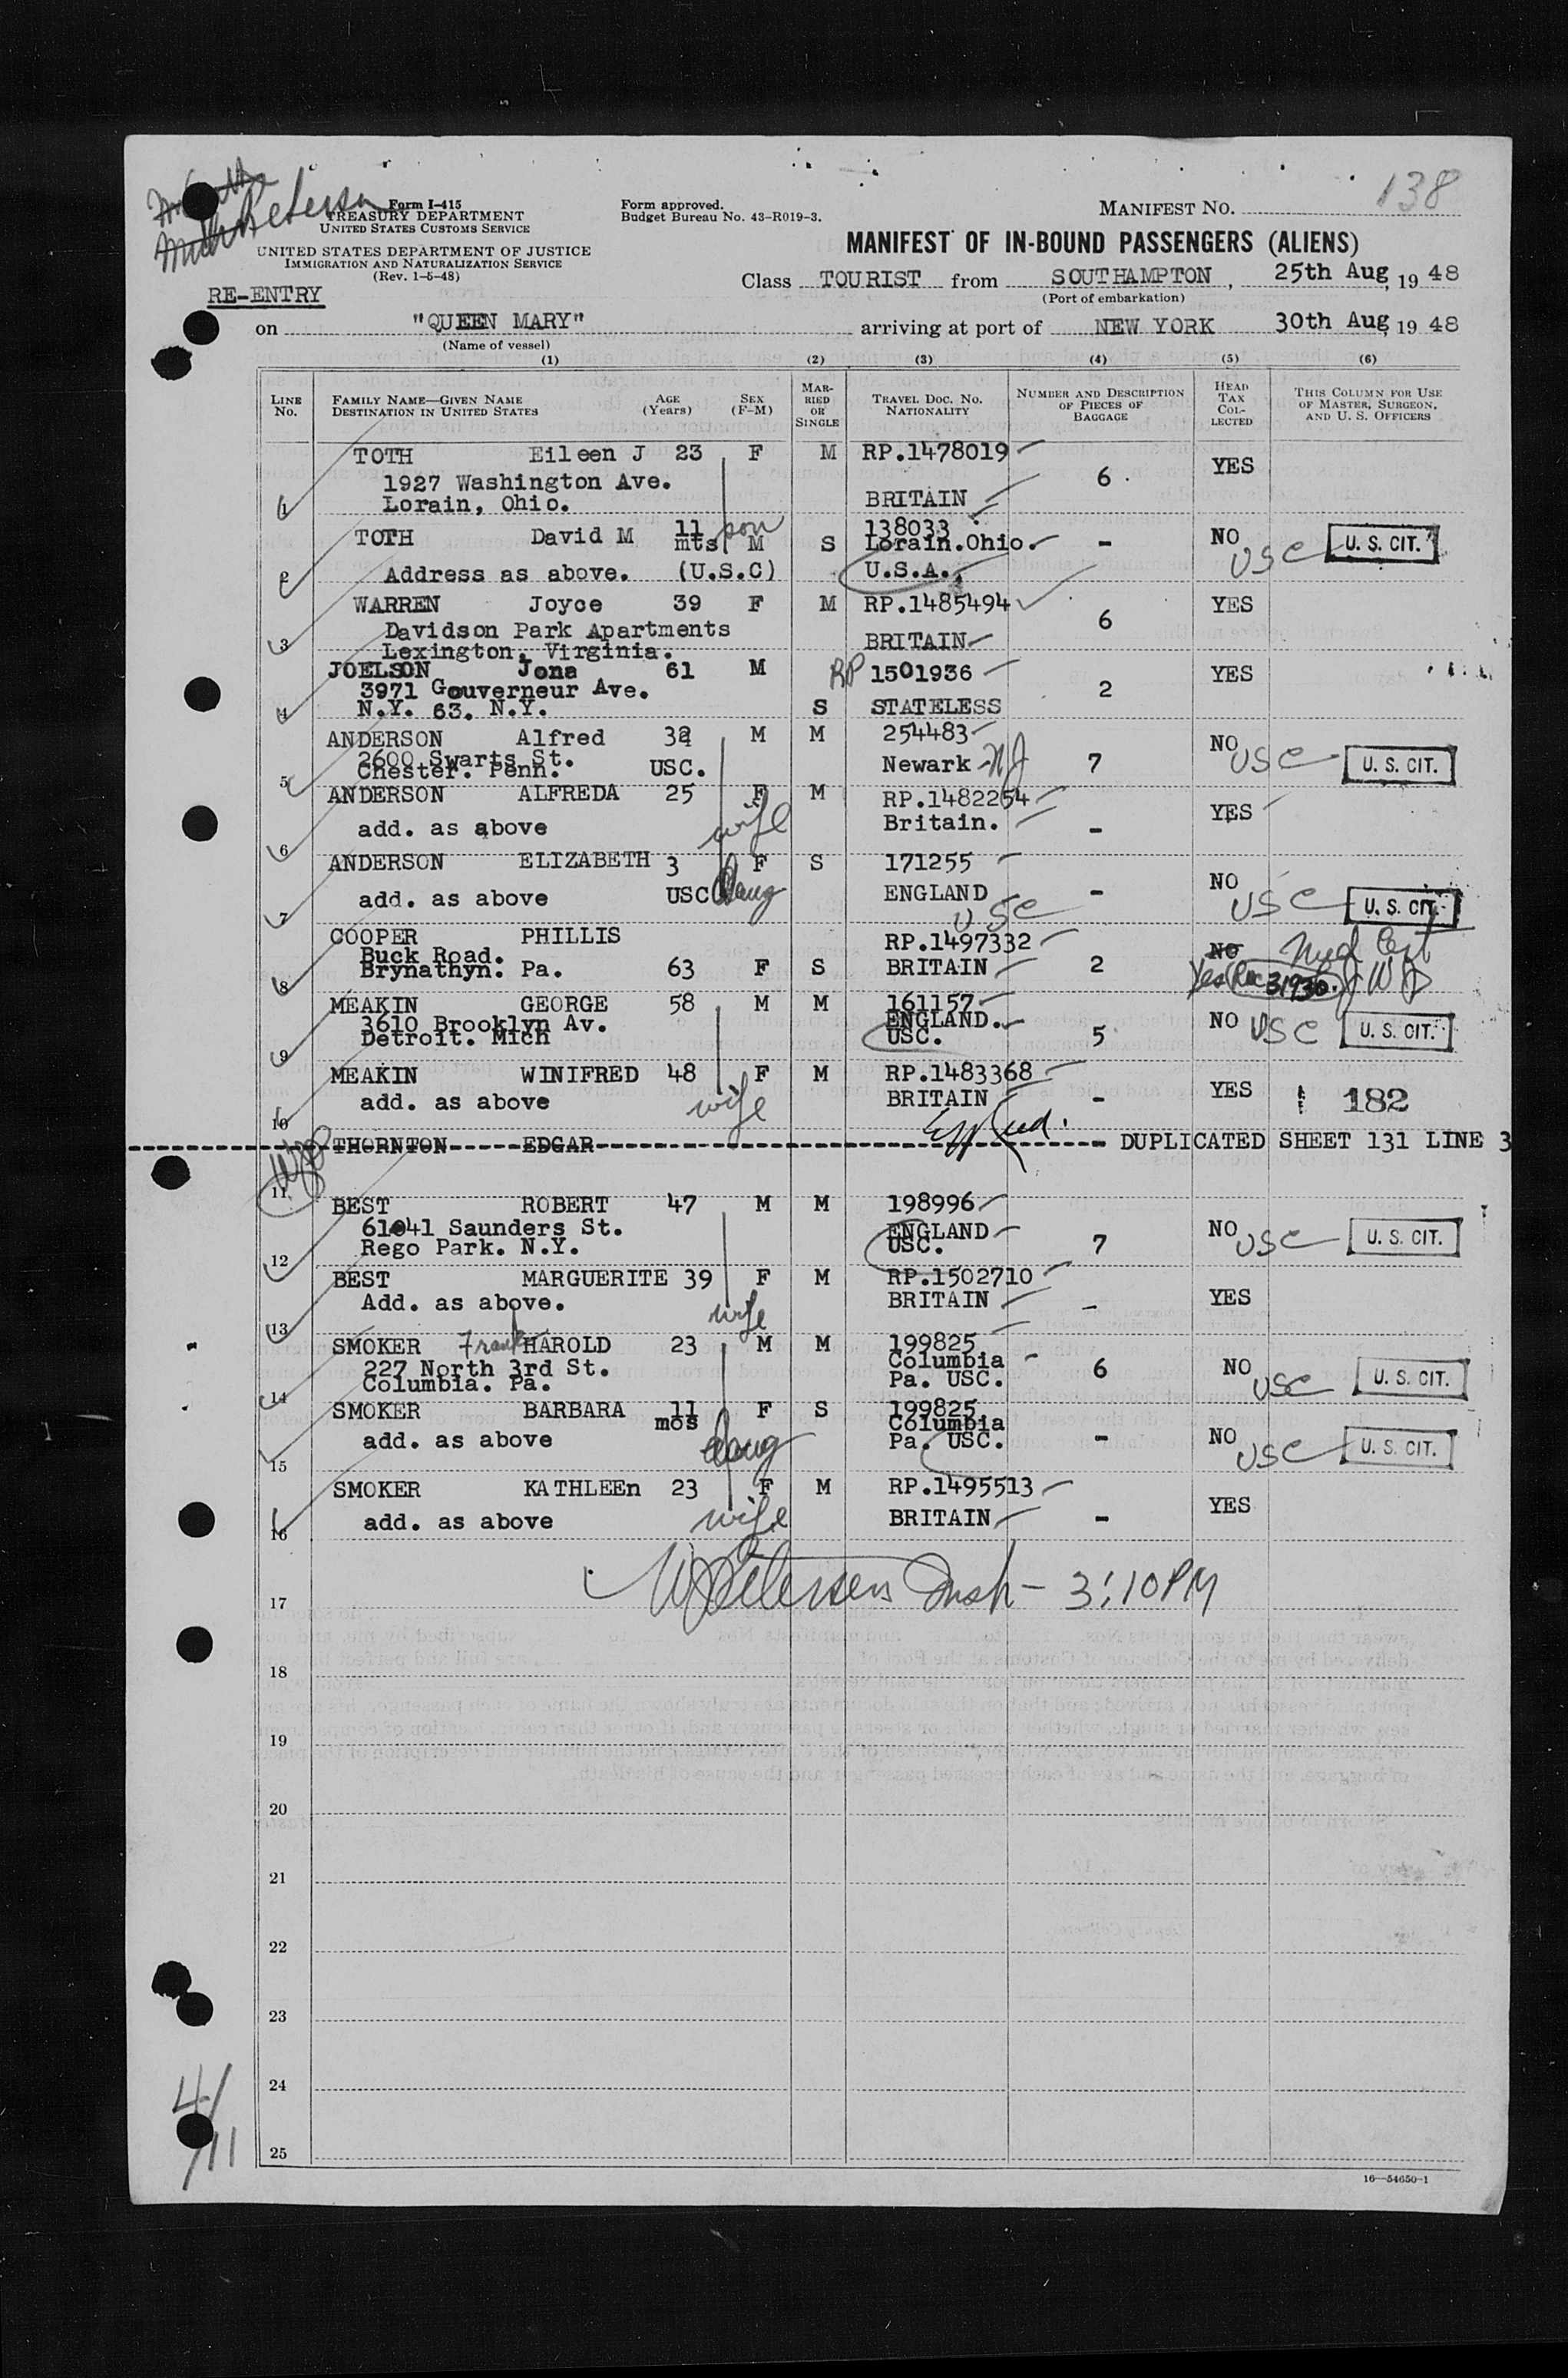 138
Form I-415
TREASURY DEPARTMENT
UNITED STATES CUSTOMS SERVICE
UNITED STATES DEPARTMENT OF JUSTICE
IMMIGRATION AND NATURALIZATION SERVICE
(Rev. 1-5-48)
RE-ENTRY
Form approved.
Budget Bureau No. 43-R019-3.
MANIFEST NO.
MANIFEST OF IN-BOUND PASSENGERS (ALIENS)
Class TOURIST from SOUTHAMPTON, 25th Aug, 19 48
(Port of embarkation)
on "QUEEN MARY" arriving at port of NEW YORK 30th Aug, 19 48
(Name of vessel)
(1) (2) (3) (4) (5) (6)
LINE No. FAMILY NAME—GIVEN NAME DESTINATION IN UNITED STATES AGE (Years) SEX (F-M) MARRIED OR SINGLE TRAVEL DOC. NO. NATIONALITY NUMBER AND DESCRIPTION OF PIECES OF BAGGAGE HEAD TAX COLLECTED THIS COLUMN FOR USE OF MASTER, SURGEON, AND U. S. OFFICERS
TOTH Eileen J 23 F M RP.1478019 6 YES
1927 Washington Ave.
1 Lorain, Ohio. BRITAIN
TOTH David M 11 mts son M S 138033 Lorain.Ohio. - NO USC U. S. CIT.
2 Address as above. (U.S.C) U.S.A.
WARREN Joyce 39 F M RP.1485494 6 YES
Davidson Park Apartments
3 Lexington, Virginia. BRITAIN
JOELSON Jona 61 M RP 1501936 2 YES
3971 Gouverneur Ave.
4 N.Y. 63. N.Y. S STATELESS
ANDERSON Alfred M M 254483 NO USC U. S. CIT.
2600 Swarts St.
5 Chester. Penn. USC. Newark NJ 7
ANDERSON ALFREDA 25 F M RP.1482254 YES
6 add. as above wife Britain. -
ANDERSON ELIZABETH 3 F S 171255 NO
7 add. as above USC Daug ENGLAND USC - USC U. S. CIT.
COOPER PHILLIS RP.1497332 NO Med Cert
Buck Road.
8 Brynathyn. Pa. 63 F S BRITAIN 2 Yes Rec 31930.
MEAKIN GEORGE 58 M M 161157
3610 Brooklyn Av. ENGLAND. NO USC U. S. CIT.
9 Detroit. Mich USC. 5
MEAKIN WINIFRED 48 F M RP.1483368 YES 182
10 add. as above wife BRITAIN -
11 THORNTON EDGAR DUPLICATED SHEET 131 LINE 3
BEST ROBERT 47 M M 198996
61041 Saunders St. ENGLAND NO USC U. S. CIT.
12 Rego Park. N.Y. USC. 7
BEST MARGUERITE 39 F M RP.1502710
13 Add. as above. wife BRITAIN - YES
SMOKER Frank HAROLD 23 M M 199825
227 North 3rd St. Columbia 6 NO USC U. S. CIT.
14 Columbia. Pa. Pa. USC.
SMOKER BARBARA 11 mos F S 199825 Columbia
15 add. as above daug Pa. USC. - NO USC U. S. CIT.
SMOKER KATHLEEn 23 F M RP.1495513
16 add. as above wife BRITAIN - YES
17 W Petersen Insp - 3:10 PM
18
19
20
21
22
23
24
25
4/11
16—54650-1